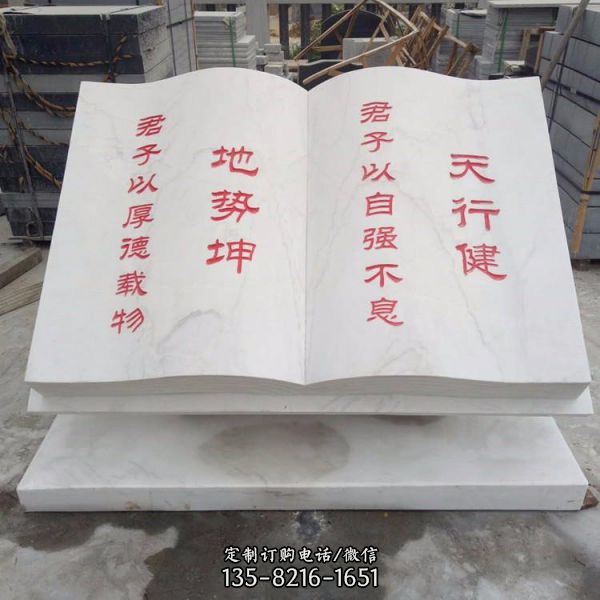 天行健
君子以自强不息
地势坤
君子以厚德载物
定制订购电话/微信
135-8216-1651